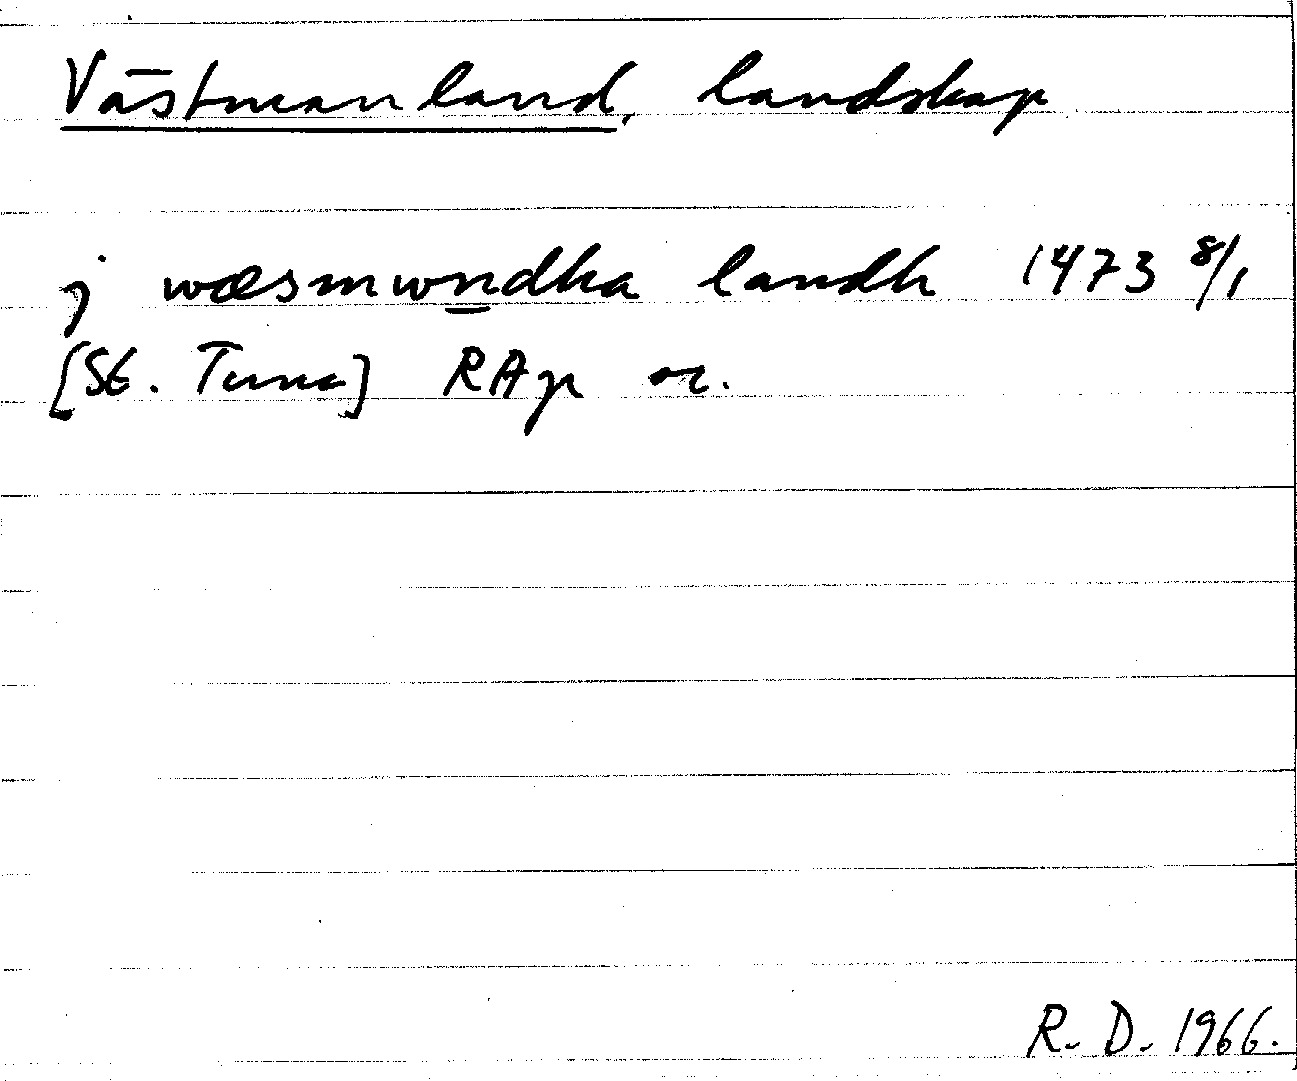 Västmanland, landskap
j wæsmwndha landh 1473 8/1
[St. Tuna] RAp or.
R. D. 1966.